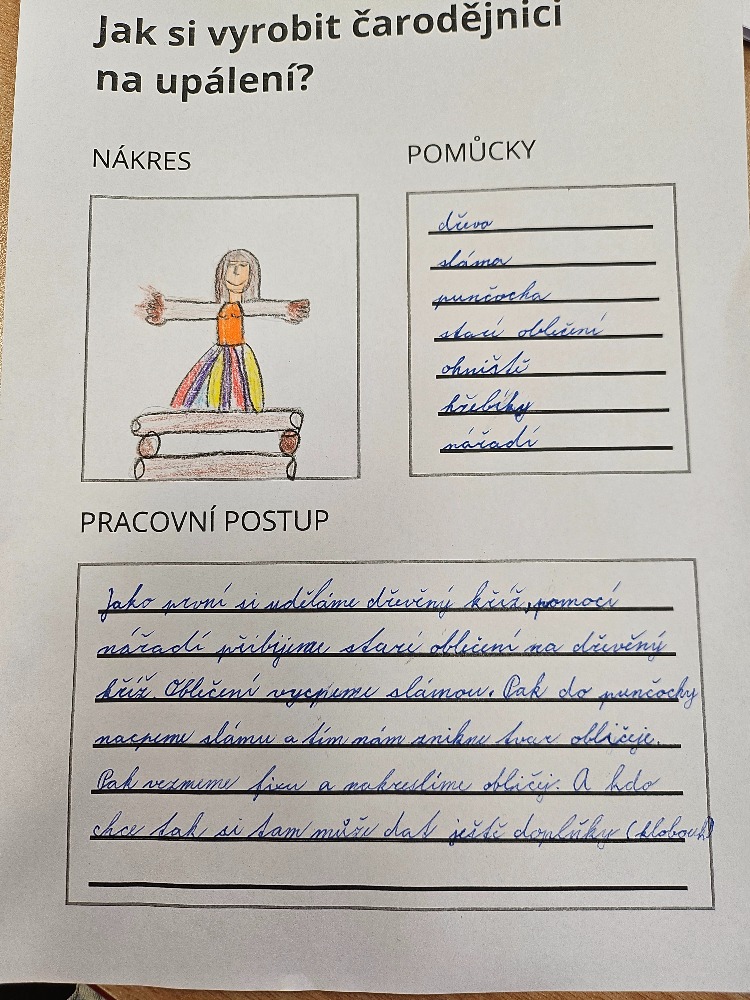 Jak si vyrobit čarodějnici
na upálení?
NÁKRES
POMŮCKY
dřevo
sláma
punčocha
starí oblečení
ohniště
hřebíky
nářadí
PRACOVNÍ POSTUP
Jako první si uděláme dřevěný kříž, pomocí
nářadí přibijeme starí oblečení na dřevěný
kříž. Oblečení vycpeme slámou. Pak do punčochy
nacpeme slámu a tím nám znikne tvar obličeje.
Pak vezmeme fixu a nakreslíme obličej. A kdo
chce tak si tam může dat ještě doplňky (klobouk)